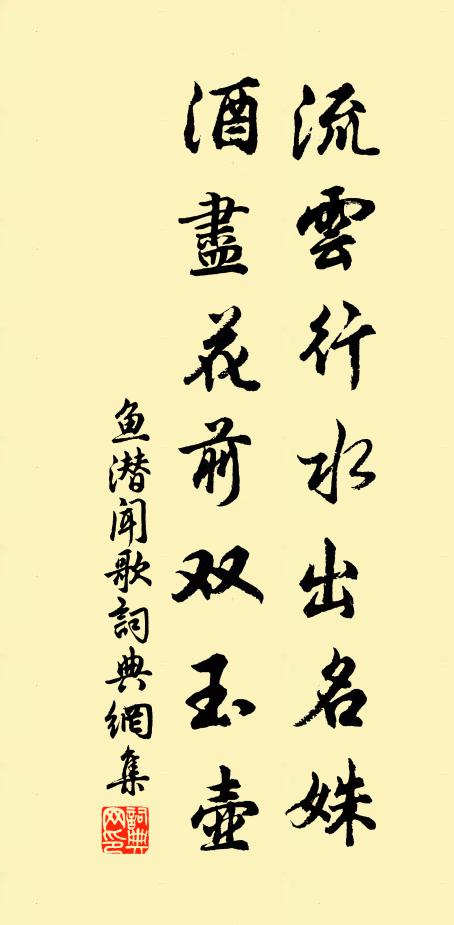 流雲行水出名姝
酒盡花前双玉壺
鱼潜闻歌詞典網集
詞典网印